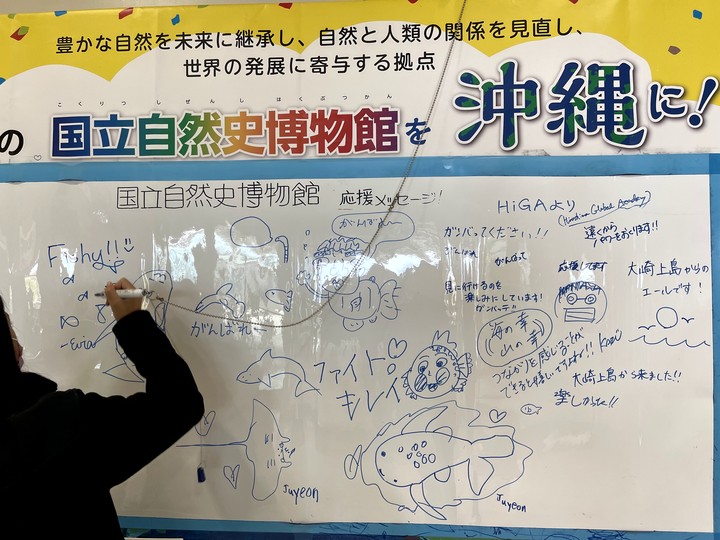 豊かな自然を未来に継承し、自然と人類の関係を見直し、
世界の発展に寄与する拠点
こくりつしぜんしはくぶつかん
の 国立自然史博物館を 沖縄に!
国立自然史博物館 応援メッセージ!
Fishy!!
~Evia
がんばれ~
がんばれー
ファイト♡
キレイ
Juyeon
Juyeon
HiGAより
ガンバってください!!
がんばれ
がんばって
見に行けるのを
楽しみにしています!
ガンバッテ!
海の幸
山の幸
つながりを感じることが
できると嬉しいですよね!! Kaori
遠くから
パワーをおくります!!
応援してます
大崎上島からの
エールです!
大崎上島から来ました!!
楽しかった!!